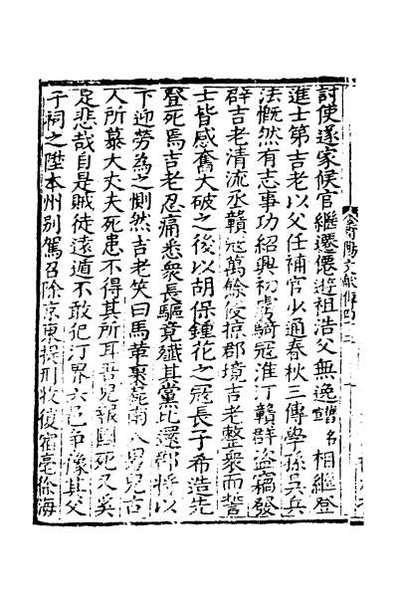 討使遂家候官繼遷僊遊祖浩父無逸䥥名相繼登
進士第吉老以父任補官少通春秋三傳學孫吳兵
法慨然有志事功紹興初虜騎寇淮汀贛群盜竊發
辟吉老清流丞贛寇萬餘侵掠郡境吉老整衆而誓
士皆感奮大破之後以胡保鍾花之冠長子希造先
登死焉吉老忍痛悉衆長驅竟殲其黨比還郡將以
下迎勞為之惻然吉老笑曰馬革裹屍南人男兒古
人所慕大丈夫死患不得其所耳吾兒報國死又奚
足悲哉自是賊徒遠遁不敢犯汀界六邑爭像其父
子祠之陞本州別駕召除京東提刑收復宿亳徐海
莆陽文獻傳四